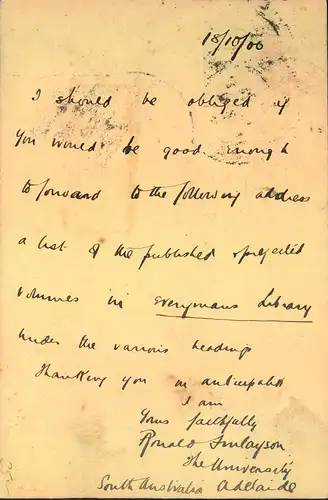 18/10/06
I should be obliged if
you would be good enough
to forward to the following address
a list of the published & projected
volumes in Everymans Library
under the various headings
Thanking you in anticipation
I am
Yours faithfully
Ronald Finlayson
The University
South Australia Adelaide